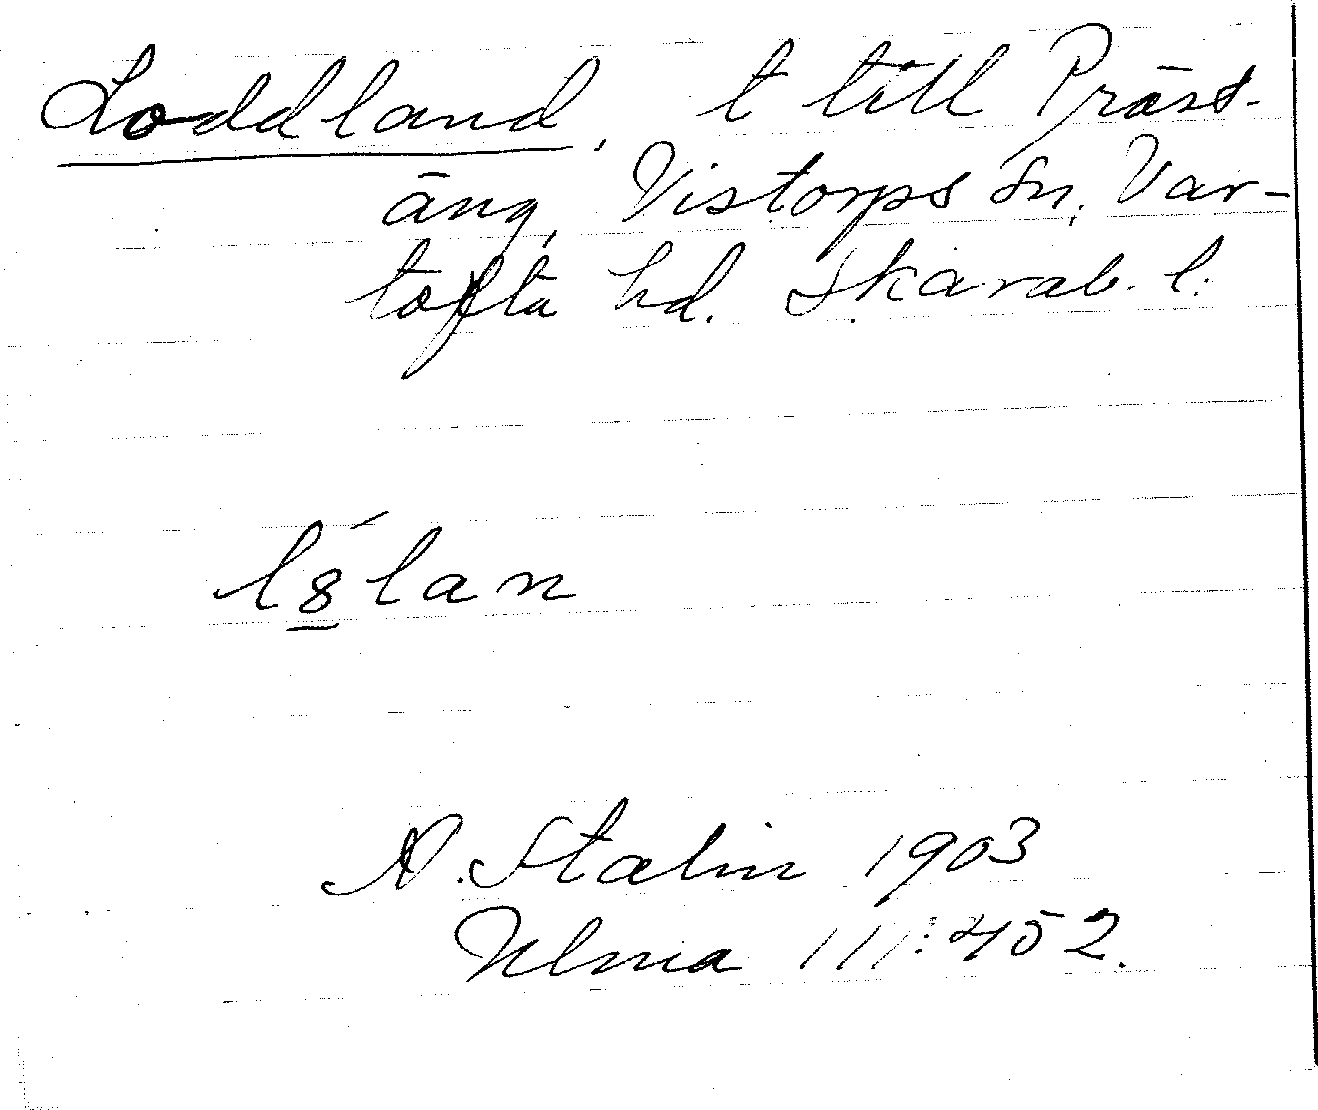 Loddland, t till Präst-
äng, Vistorps sn, Var-
tofta hd. Skarab. l.
l8́lan
A. Stalin 1903
Ulma 111:452.